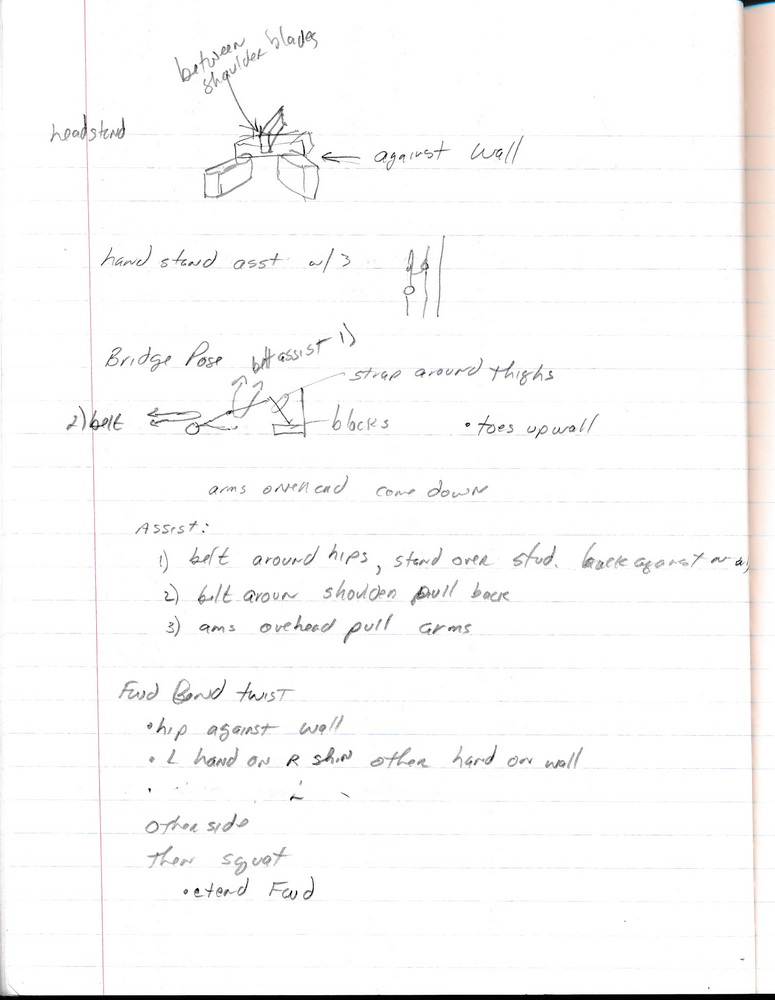 between
shoulder blades
headstand
against wall
hand stand asst w/3
Bridge Pose
belt assist 1)
strap around thighs
2) belt
blocks
• toes up wall
arms overhead come down
Assist:
1) belt around hips, stand over stud. back against
2) belt aroun shoulder pull back
3) ams ovehead pull arms
Fwd Bend twist
• hip against wall
• L hand on R shin other hand on wall
•
other side
then squat
• etend Fwd